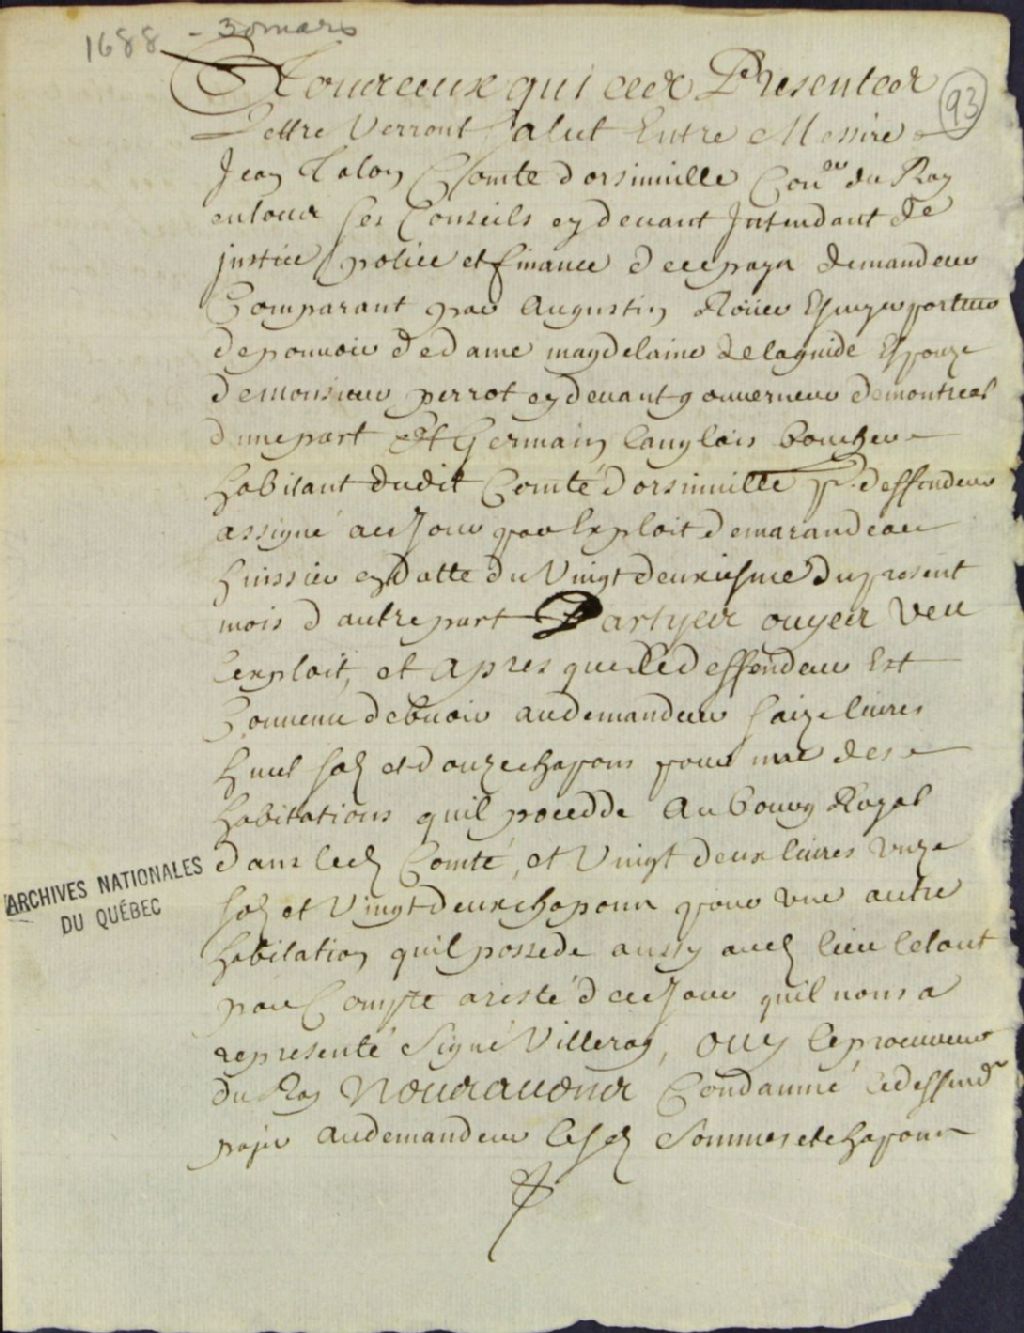 1688 - 30 mars
93
A tous ceux qui ces Presentes
Lettre Verront Salut Entre Messire
Jean Talon Comte dorsinuille Con.er du Roy
en tous ses Conseils cy deuant Intendant de
justice police et finance de ce pays demandeur
Comparant par Augustin Roüer Escuyer porteur
de pouuoir de dame magdelaine Delaguide Espouze
de monsieur perrot cy deuant gouuerneur de montreal
d'une part Et Germain langlois boucher
habitant dudit Comté dorsinuille deffendeur
assigné a ce Jour par Exploit de marandeau
huissier en datte du Vingt deuxiesme du present
mois d'autre part Partyes ouyes Veu
lexploit, et apres que le deffendeur Est
Conuenu debuoir au demandeur saize liures
huit solz et douze chapons pour une des
habitations quil possedde au bourg Royal
dans led. Comté, et Vingt deux liures unze
solz et Vingt deux chapons pour une autre
habitation quil possede aussy aud. lieu le tout
par Compte aresté de ce Jour quil nous a
representé Signé Villeray, ouy le procureur
du Roy Nous auons Condamné le deffend.r
payer au demandeur lesd. Sommes et chapons
ARCHIVES NATIONALES
DU QUÉBEC